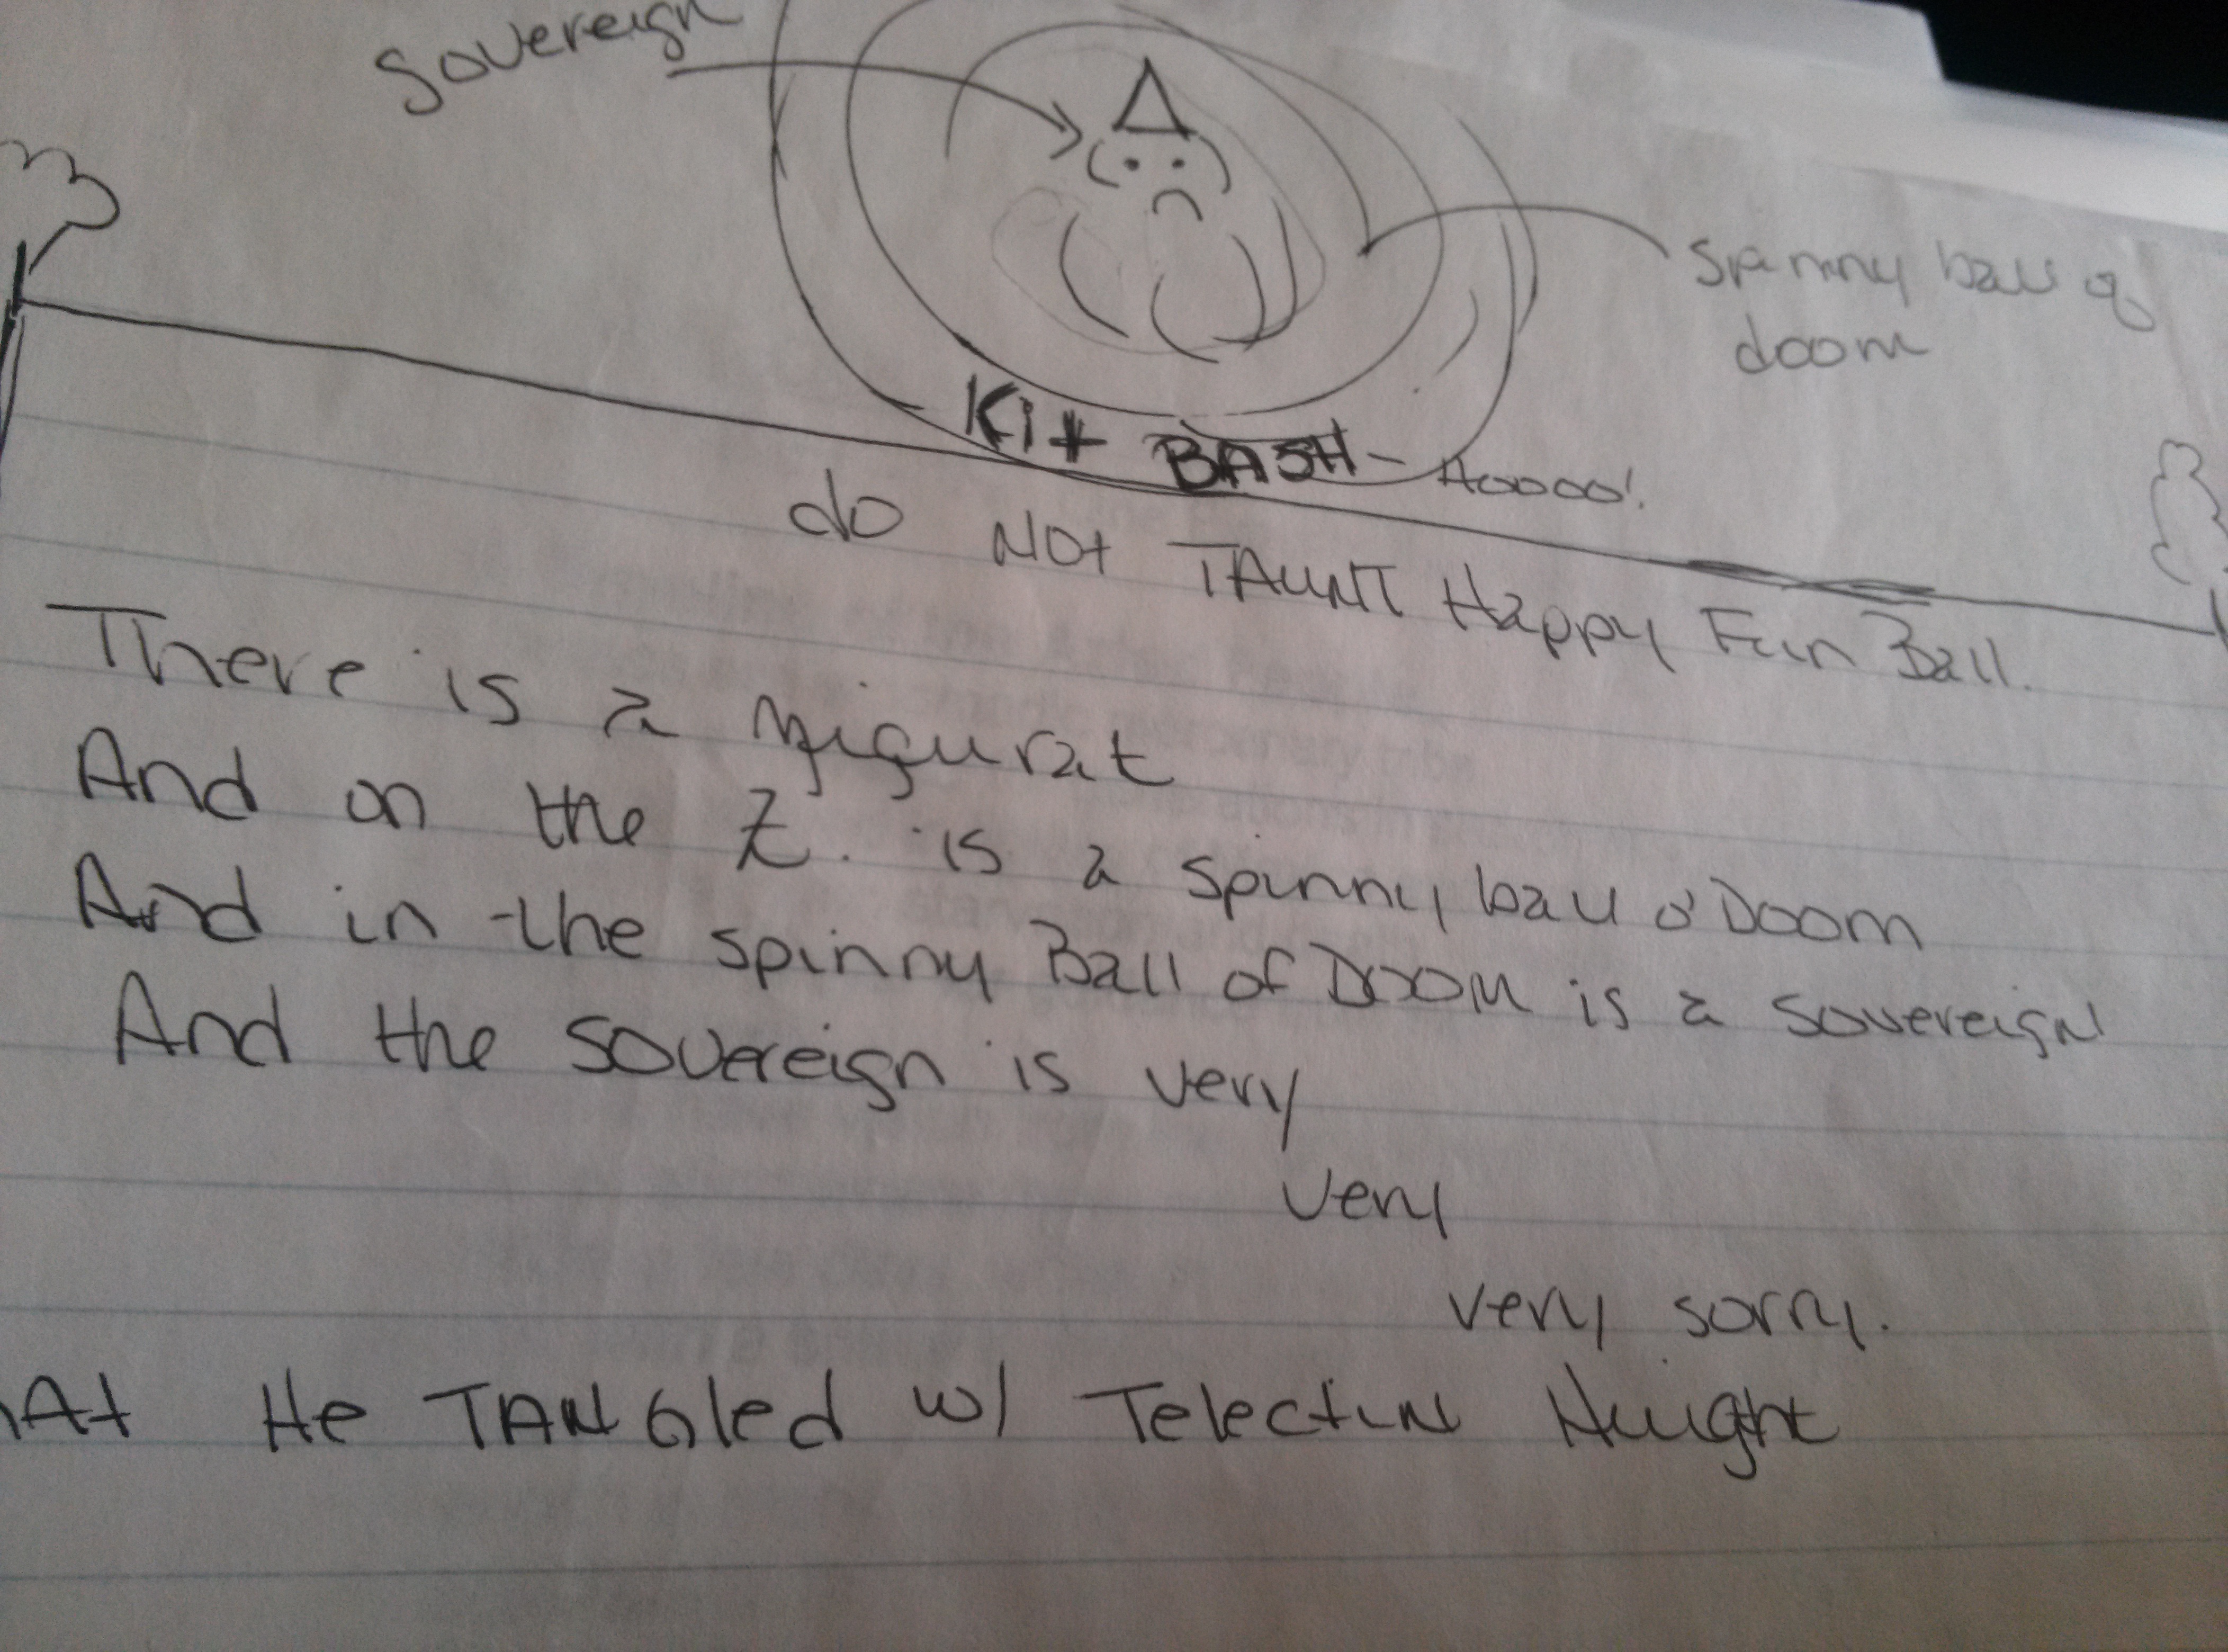 Sovereign
spinny ball of
doom
Kit BASH - Aoooo!
do NOt TAUNT Happy Fun Ball.
There is a zigurat
And on the Z. is a spinny ball o' Doom
And in the spinny Ball of DOOM is a sovereign
And the sovereign is very
very
very sorry.
At He TANGled w/